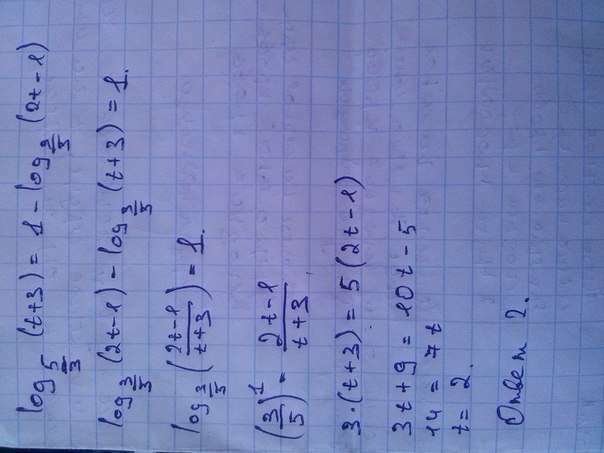 log_{5/3} (t+3) = 1 - log_{3/5} (2t-1)
log_{3/5} (2t-1) - log_{3/5} (t+3) = 1.
log_{3/5} ((2t-1)/(t+3)) = 1.
(3/5)^1 = (2t-1)/(t+3).
3·(t+3) = 5(2t-1)
3t+9 = 10t-5
14 = 7t
t = 2.
Ответ 2.